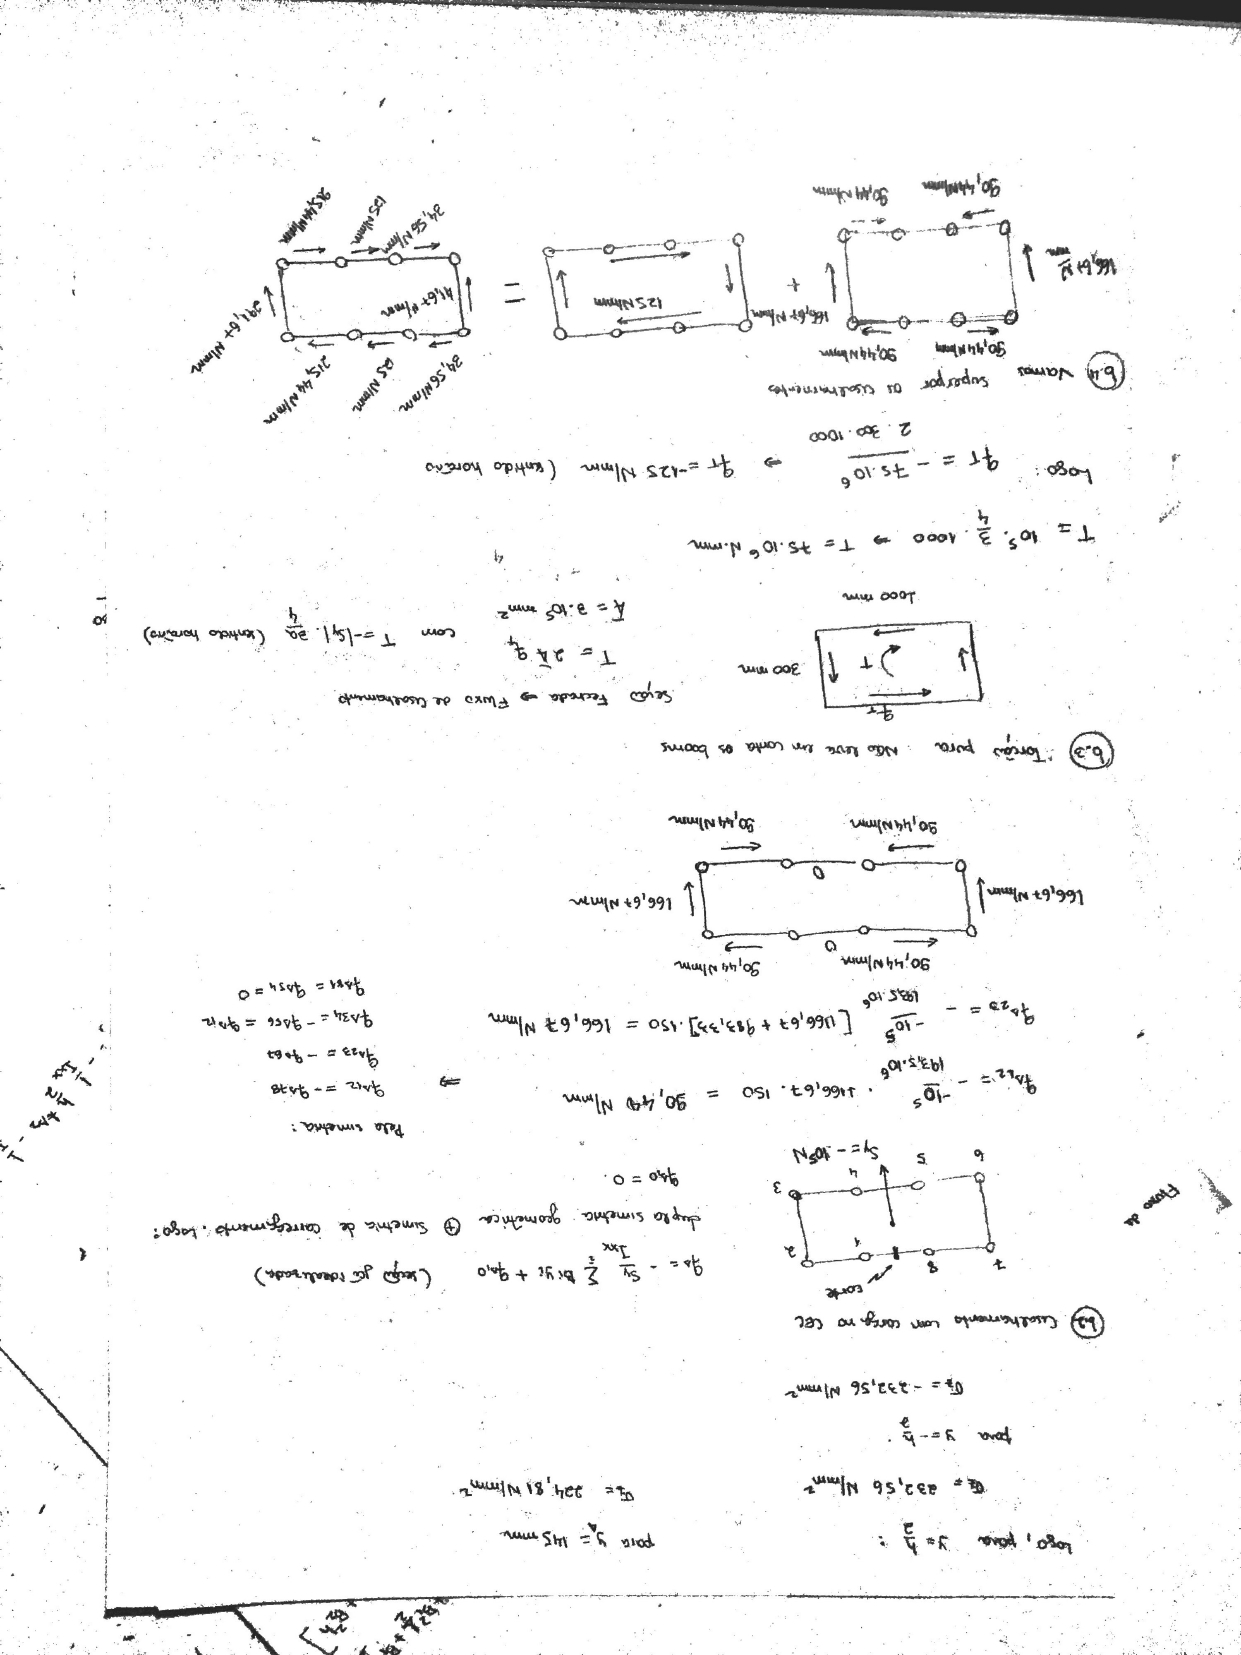 Logo, para y = h/2 :
σz = 232,56 N/mm²
para y = -h/2
σz = -232,56 N/mm²
para yA = 145 mm
σz = 224,81 N/mm²
Fluxo de
b.2 Cisalhamento com carga no CEC
corte
7 8 1 2
6 5 4 3
Sy = -10⁵ N
qs = - Sy/Ixx Σi Bi yi + qs,0 (seção já idealizada)
dupla simetria geométrica ⊕ Simetria de carregamento. Logo:
qs,0 = 0.
qs12 = - -10⁵/193,5.10⁶ . 1166,67. 150 = 90,44 N/mm
qs23 = - -10⁵/193,5.10⁶ [1166,67 + 983,33].150 = 166,67 N/mm
⇒
Pela simetria:
qs12 = -qs78
qs23 = -qs67
qs34 = -qs56 = qs12
qs81 = qs54 = 0
90,44 N/mm 0 90,44 N/mm
166,67 N/mm 166,67 N/mm
0
90,44 N/mm 90,44 N/mm
b.3 Torção pura. Não leva em conta os booms
qT
T
300 mm
1000 mm
Seção Fechada ⇒ Fluxo de Cisalhamento
T = 2 Ā qT
Ā = 3.10⁵ mm²
com T = -|Sy|. 3a/4 (sentido horário)
T = 10⁵. 3/4 . 1000 ⇒ T = 75.10⁶ N.mm
Logo: qT = - 75.10⁶/2 . 300 . 1000 ⇒ qT = -125 N/mm (sentido horário
b.4 Vamos superpor os cisalhamentos
90,44 N/mm 90,44 N/mm
166,67 N/mm 166,67 N/mm
90,44 N/mm 90,44 N/mm
+
125 N/mm
=
34,56 N/mm 125 N/mm 215,44 N/mm
41,67 N/mm 291,67 N/mm
34,56 N/mm 125 N/mm 215,44 N/mm